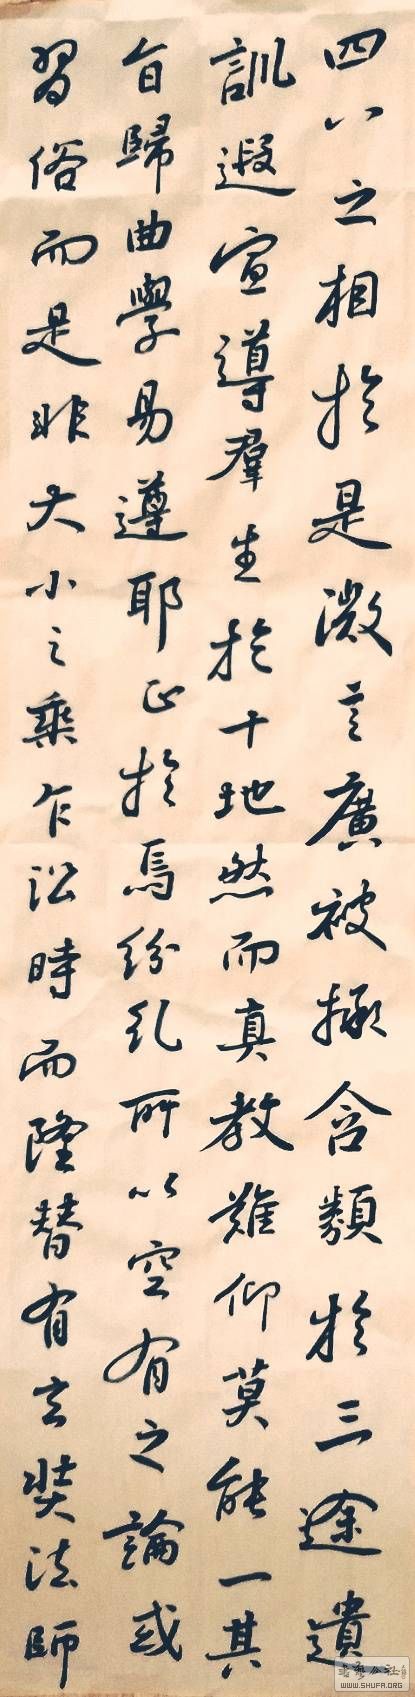 四八之相於是微言廣被拯含類於三途遺
訓遐宣導羣生於十地然而真教難仰莫能一其
旨歸曲學易遵耶正於焉紛乱所以空有之論或
習俗而是非大小之乘乍訟時而隆替有玄奘法師
書藝公社
WWW.SHUFA.ORG